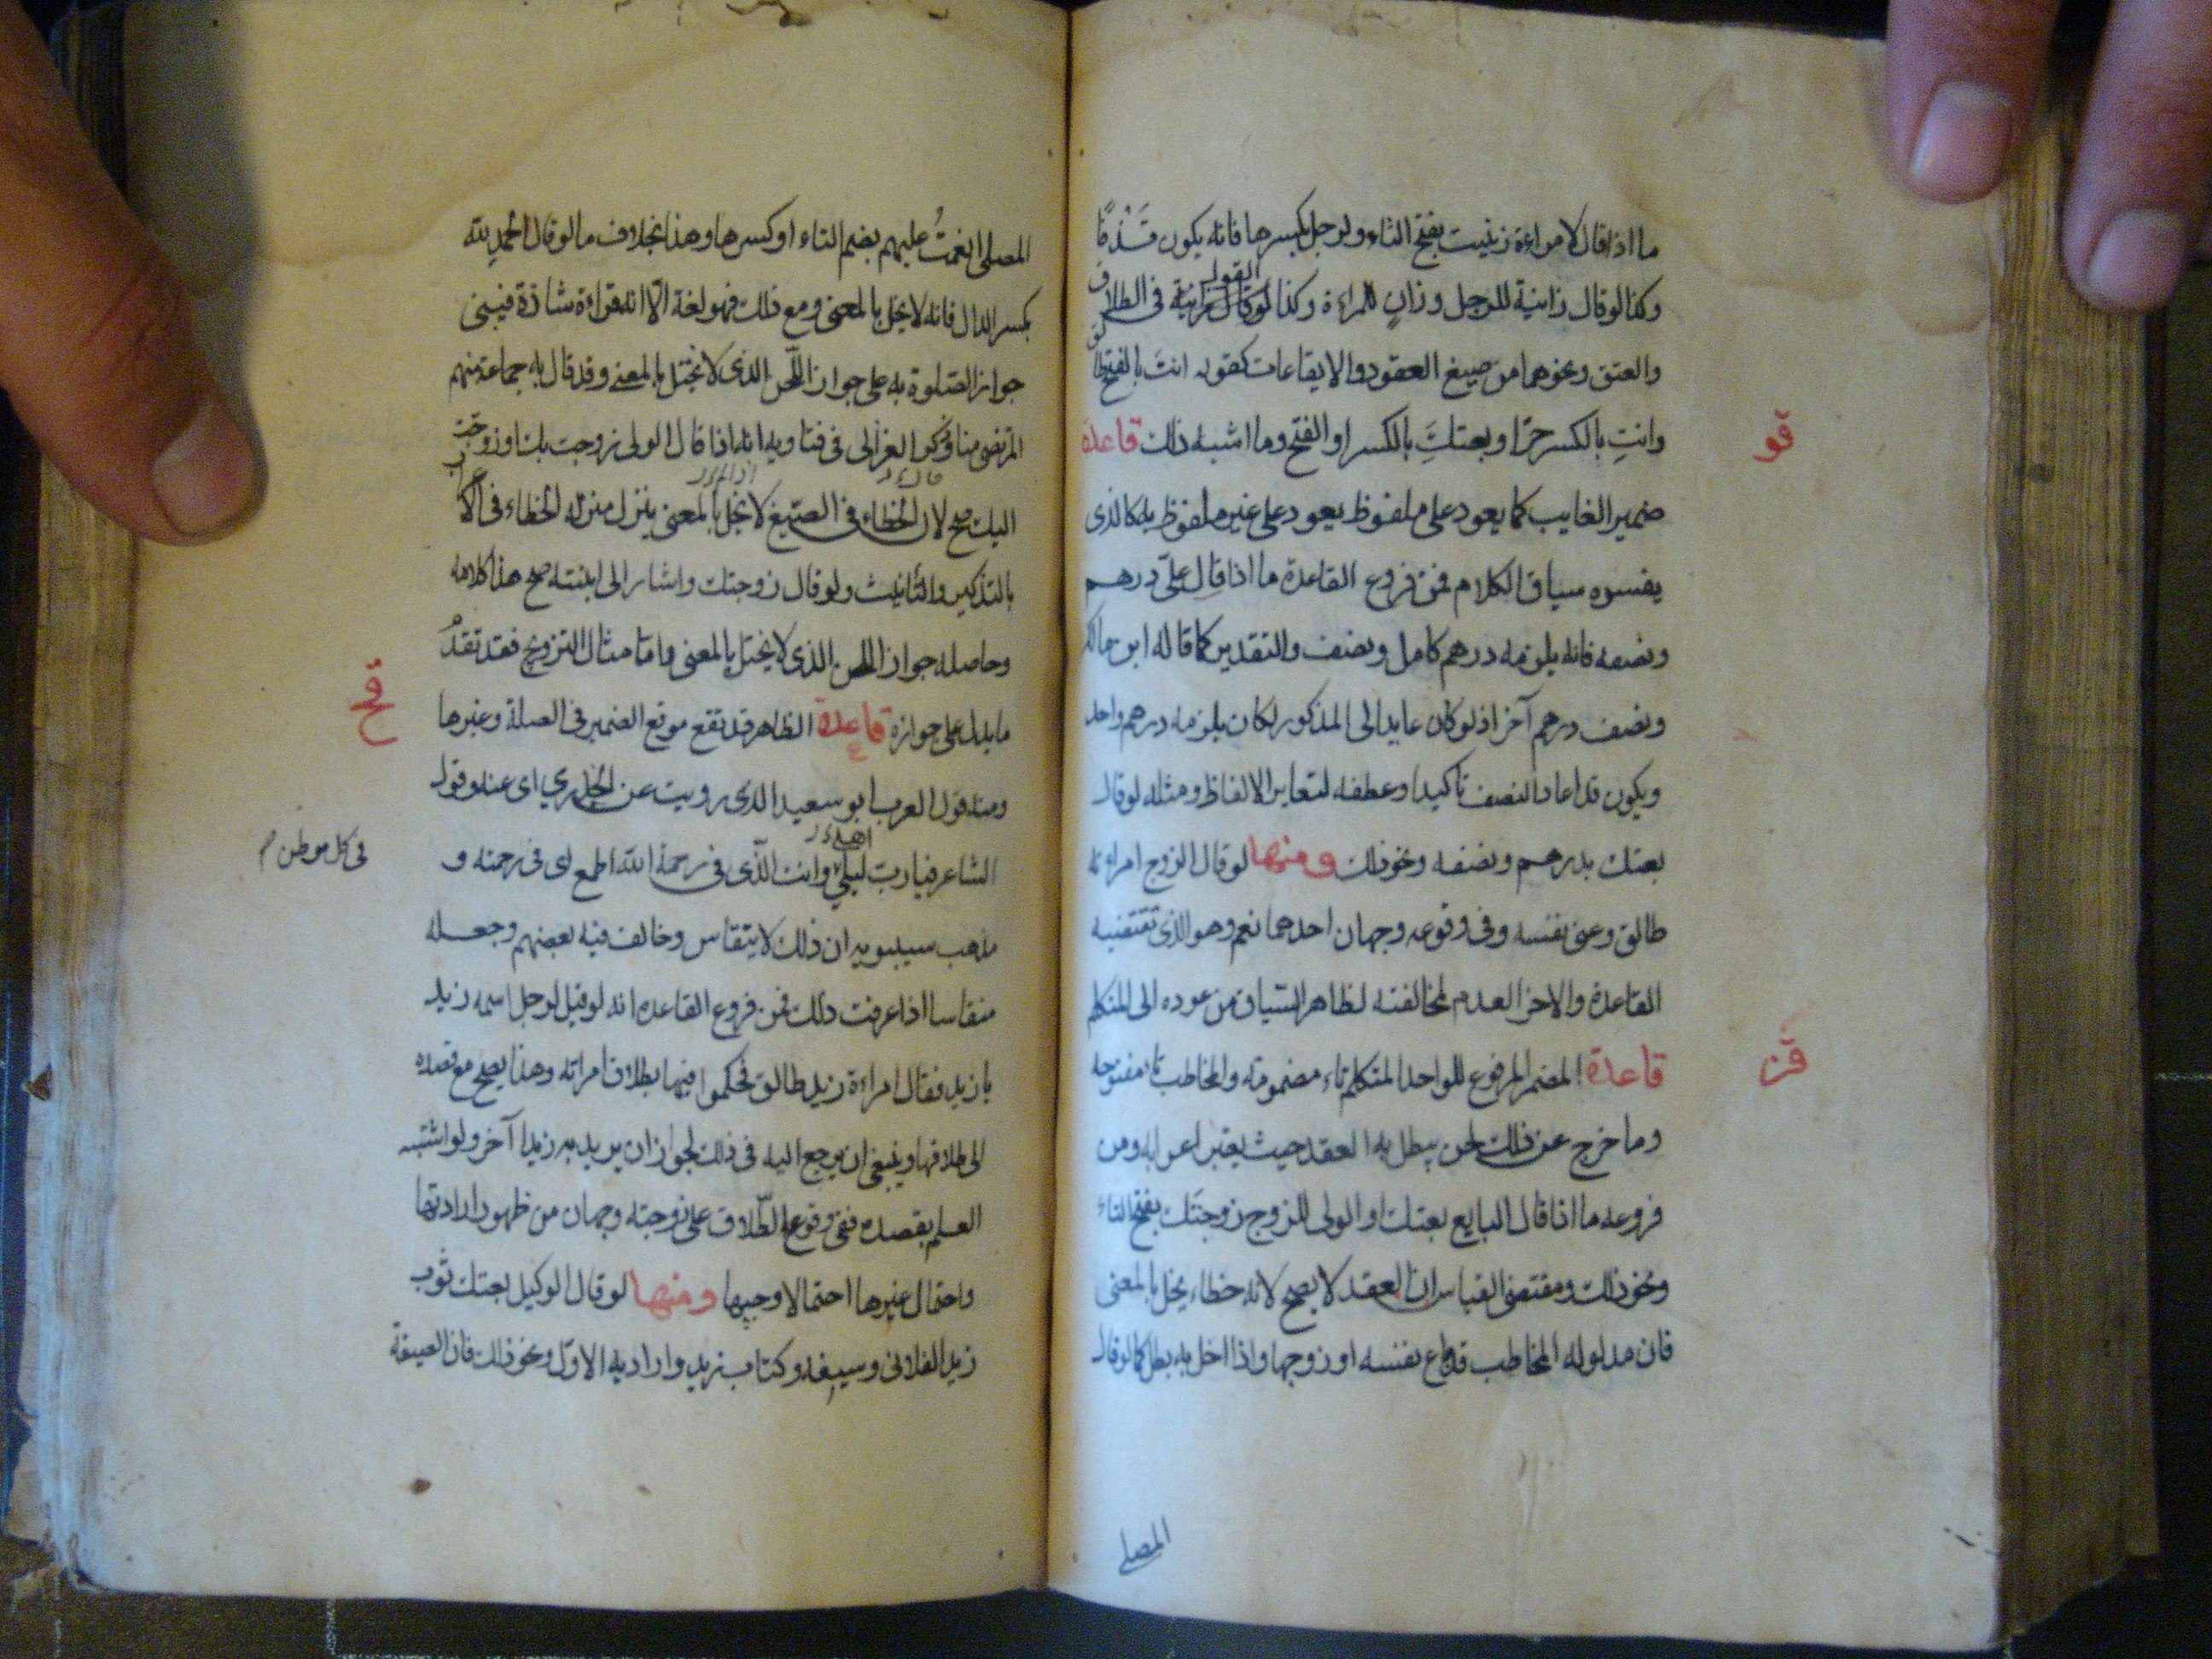 ما اذا قال لامراءة زنيت بفتح التاء ولرجل بكسرها فانه يكون قَذْفًا
وكذا لو قال زانية للرجل وزانٍ للمراءة وكذا القول في الطلاق
والعتق ونحوهما من صيغ العقود والايقاعات كقوله انتَ بالفتح طالق
وانتِ بالكسر حرّ او بعتكِ بالكسر او الفتح وما اشبه ذلك قاعدة
قو
ضمير الغايب كما يعود على ملفوظ يعود على غير ملفوظ به كالذى
يفسره سياق الكلام فمن فروع القاعدة ما اذا قال علىّ درهم
ونصفه فانه يلزمه درهم كامل ونصف والتقدير كما قاله ابن مالك
ونصف درهم آخر اذ لو كان عايدا الى المذكور لكان يلزمه درهم واحد
ويكون قد اعاد النصف تاكيدا وعطفه لتغاير الالفاظ ومثله لو قال
بعتك بدرهم ونصفه ونحو ذلك ومنها لو قال الزوج امراءته
طالق وعنى نفسه وفى وقوعه وجهان احدهما نعم وهو الذى تقتضيه
القاعدة والاخر العدم لمخالفته لظاهر السياق من عوده الى المتكلم
قاعدة المضمر المرفوع للواحد المتكلم تاء مضمومة والمخاطب تاء مفتوحة
قز
وما خرج عن ذلك لحن يبطل به العقد حيث يعتبر اعرابه ومن
فروعه ما اذا قال البايع بعتك او الولى للزوج زوجتَك بفتح التاء
ونحو ذلك ومقتضى القياس ان العقد لا يصح لانه خطاء يخل بالمعنى
فان مدلوله المخاطب قد باع نفسه او زوجها واذا اخل به بطل كما لو قال
المصلى
المصلى انعمتُ عليهم بضم التاء او كسرها وهذا بخلاف ما لو قال الحمدِ لله
بكسر الدال فانه لا يخل بالمعنى ومع ذلك فهو لغة الّا انه قراءة شاذة فيبنى
جواز الصلوة به على جواز اللحن الذى لا يختل بالمعنى وقد قال به جماعة منهم
المرتضى منا وذكر الغزالى فى فتاويه انه اذا قال الولى زوجت بك او زوجت
اليك صح لان الخطاء فى الصيغ لا يخل بالمعنى ينزل منزلة الخطاء فى الاعراب
بالتذكير والتانيث ولو قال زوجتك واشار الى ابنته صح هذا كلامه
وحاصله جواز اللحن الذى لا يختل بالمعنى واما مثال التزويج فقد تقدم
ما يدل على جوازه قاعدة الظاهر قد تقع موقع الضمير فى الصلة وغيرها
قح
ومنه قول العرب ابو سعيد الذى رويت عن الخدري اى عنه وقول
الشاعر فيا رب ليلى وانت الّذى فى رحمة الله اطمع اى فى رحمته و
فى كل موطن
مذهب سيبويه ان ذلك لا يتقاس وخالف فيه بعضهم وجعله
منقاسا اذا عرفت ذلك فمن فروع القاعده انه لو قيل لرجل اسمه زيد
يا زيد فقال امراءة زيد طالق فحكموا فيها بطلاق امراته وهذا يصح مع قصده
الى طلاقها وينبغى ان يرجع اليه فى ذلك لجواز ان يريد به زيدا آخر ولو اشتبه
العلم بقصده ففى وقوع الطّلاق على زوجته وجهان من ظهور ارادتها
واحتمال غيرها احتمالا وجيها ومنها لو قال الوكيل بعتك ثوب
زيد الفلانى وسيفه وكتاب زيد واراد به الاوّل ونحو ذلك فان الصيغة